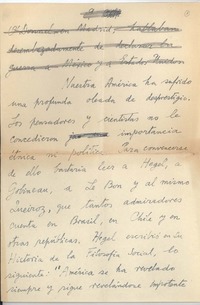 Nuestra América ha sufrido
una profunda oleada de desprestigio.
Los pensadores y cientistas no la
concedieron importancia
étnica ni política. Para convencerse
de ello bastaría leer a Hegel, a
Gobineau, a Le Bon y al mismo
Queiroz, que tantos admiradores
cuenta en Brasil, en Chile y en
otras repúblicas. Hegel escribió en su
Historia de la Filosofía Social, lo
siguiente: "América se ha revelado
siempre y sigue revelándose impotente